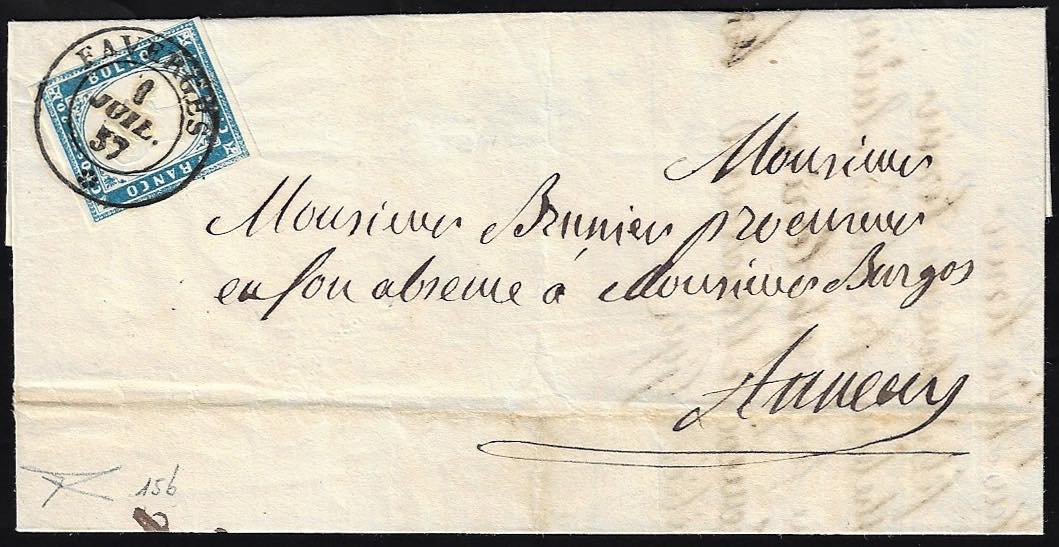 FAVERGES
8
JUIL.
57
BOLLO
FRANCO
Monsieur
Monsieur Brunier procureur
en son absence à Monsieur Burgos
Annecy
15b